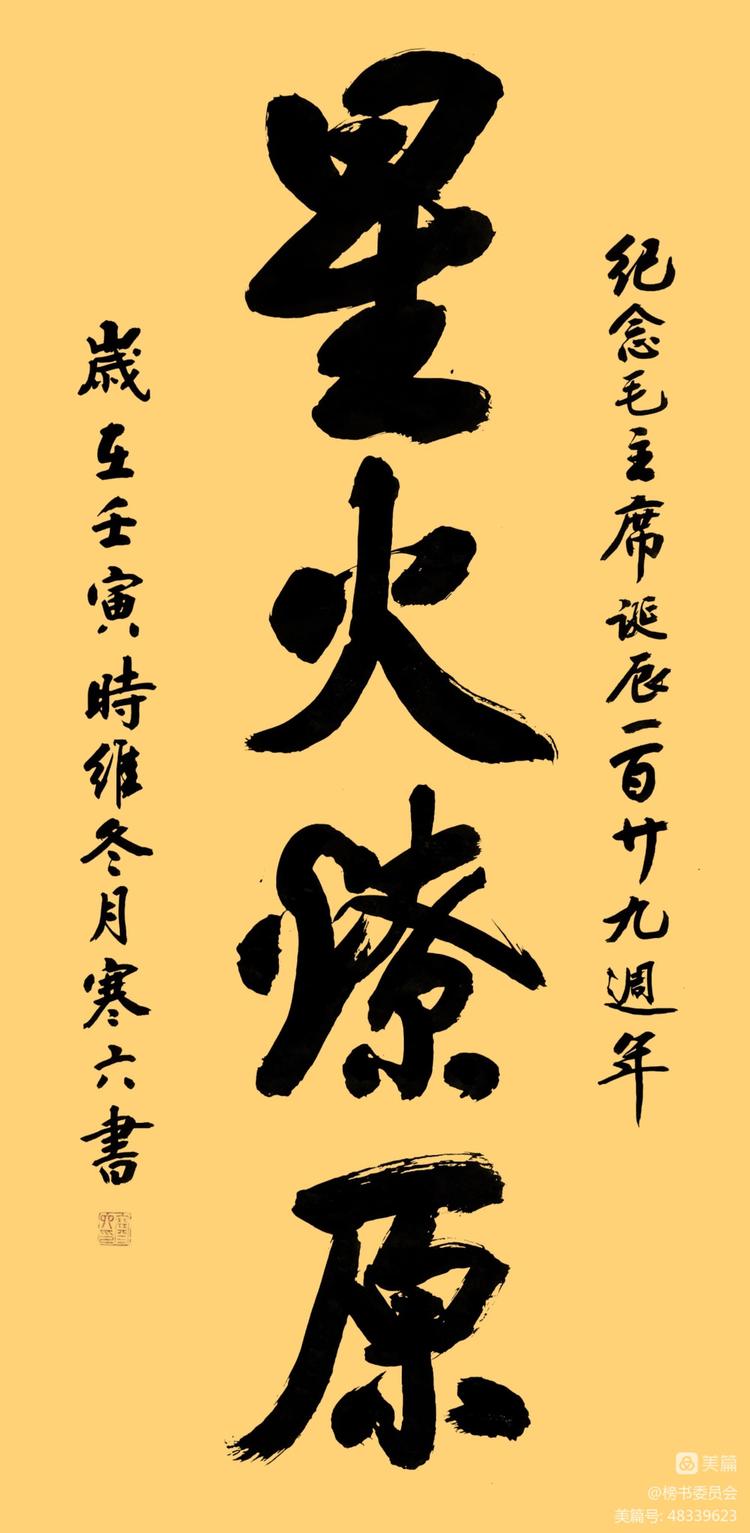 紀念毛主席誕辰一百廿九週年
星火燎原
歲在壬寅時維冬月寒六書
美篇
@榜书委员会
美篇号: 48339623